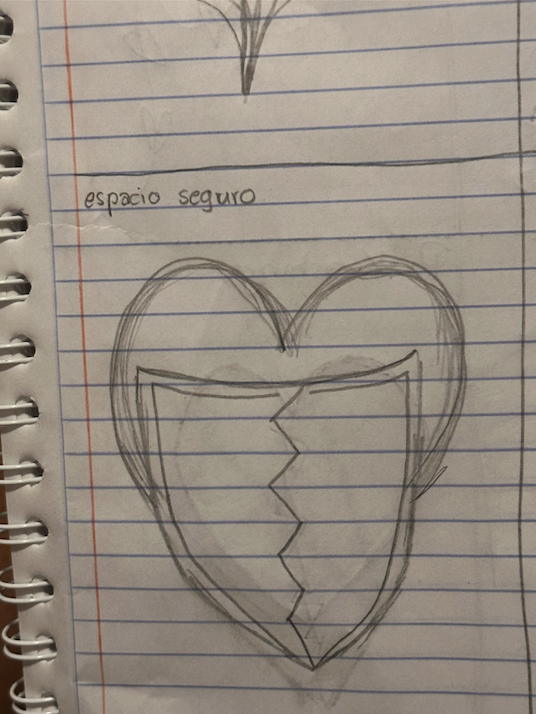 espacio seguro